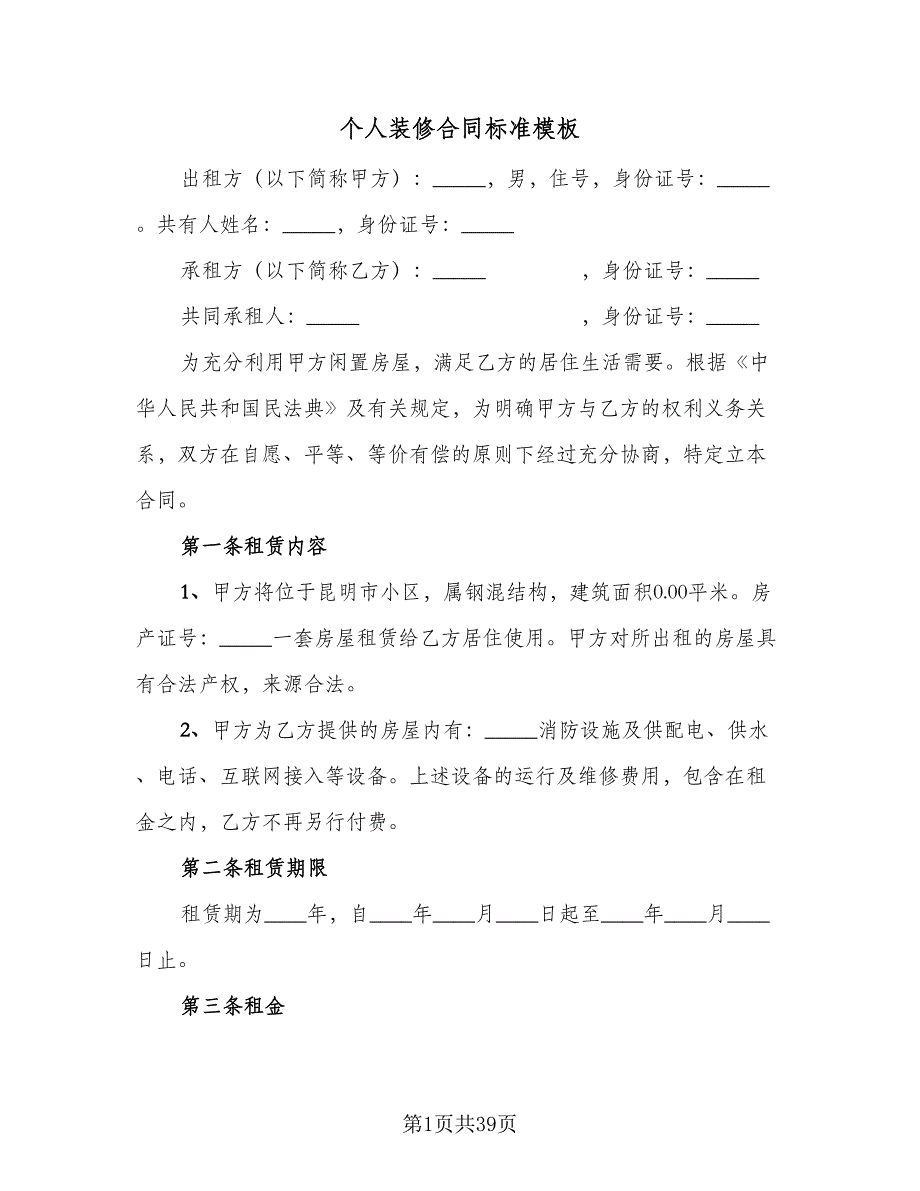 个人装修合同标准模板
出租方（以下简称甲方）：_____，男，住号，身份证号：_____
。共有人姓名：_____，身份证号：_____
承租方（以下简称乙方）：_____ ，身份证号：_____
共同承租人：_____ ，身份证号：_____
为充分利用甲方闲置房屋，满足乙方的居住生活需要。根据《中
华人民共和国民法典》及有关规定，为明确甲方与乙方的权利义务关
系，双方在自愿、平等、等价有偿的原则下经过充分协商，特定立本
合同。
第一条租赁内容
1、甲方将位于昆明市小区，属钢混结构，建筑面积0.00平米。房
产证号：_____一套房屋租赁给乙方居住使用。甲方对所出租的房屋具
有合法产权，来源合法。
2、甲方为乙方提供的房屋内有：_____消防设施及供配电、供水
、电话、互联网接入等设备。上述设备的运行及维修费用，包含在租
金之内，乙方不再另行付费。
第二条租赁期限
租赁期为____年，自____年____月____日起至____年____月____
日止。
第三条租金
第1页共39页